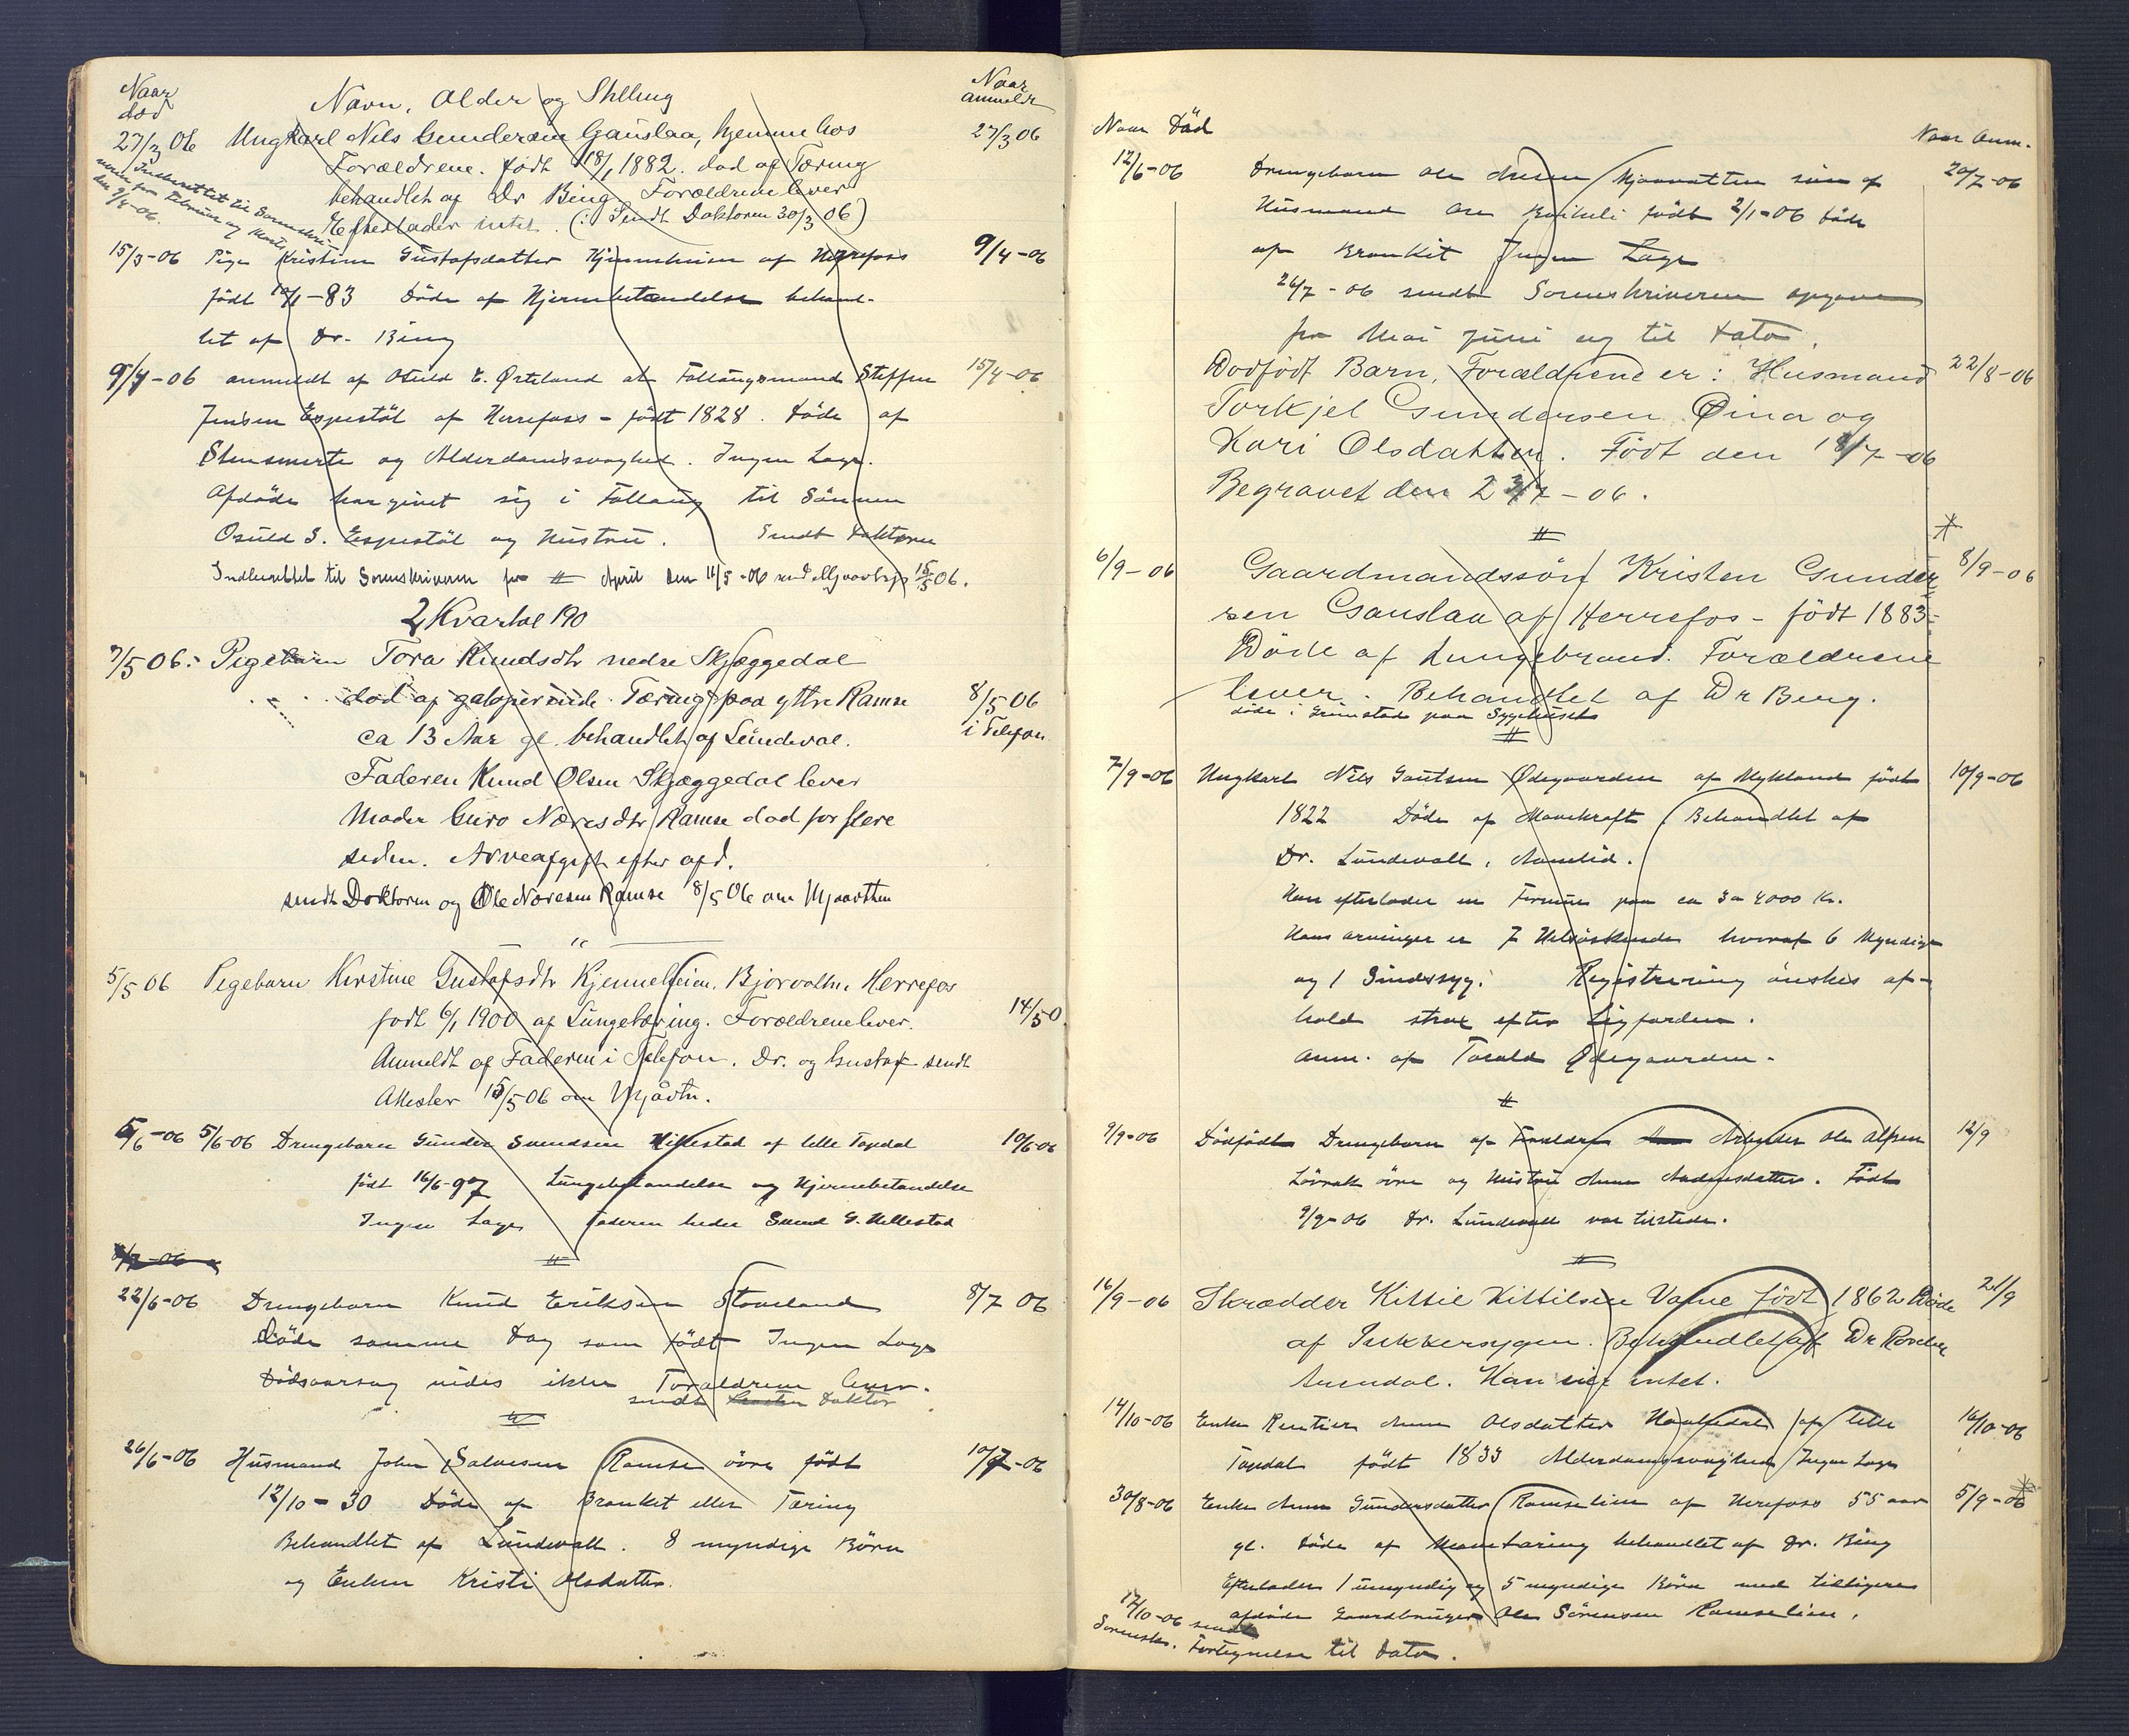 Naar død
Navn, Alder og Stilling
Naar anmeldt
27/3 06 Ungkarl Nils Gundersen Gauslaa, hjemme hos 27/3 06
Forældrene. født 18/1 1882. død af Tæring
behandlet af Dr Bing. Forældrene lever
Efterlader intet. (: Sendt Doktoren 30/3 06)
Indberettet til Sorenskri-
veren for Februar og Marts
den 9/4-06.
15/3-06 Pige Kristine Gustafsdatter Kjennheien af Herefoss 9/4-06
født -83 Døde af Hjernebetændelse behand-
let af Dr. Bing
9/4-06 anmeldt af Osuld E. Ørteland at Follaugsmand Steffen 15/4-06
Jensen Espestøl af Herrefoss - født 1828. Døde af
Stensmerte og Alderdomssvaghed. Ingen Lage.
Afdøde har givet sig i Follaug til Sønnen
Osuld S. Espestøl og Hustru. Sendt Doktoren
Indberettet til Sorenskriveren for April den 11/5-06 15/5 06.
2 Kvartal 190
7/5 06: Pigebarn Tora Knudsdtr nedre Skjæggedal
død af galoperende Tæring paa yttre Ramse 8/5 06
ca 13 Aar gl. behandlet af Lundeval. i Telefon
Faderen Knud Olsen Skjæggedal lever
Moder Guro Næresdtr Ramse død for flere
siden. Arveafgift efter afd.
sendt Doktoren og Ole Næresen Ramse 8/5 06 om Mjaavtten
"
5/5 06 Pigebarn Kirstine Gustafsdtr Kjennelheien, Bjorvatn, Herrefos
født 6/1 1900 af Lungetæring. Forældrene lever. 14/5 0
Anmeldt af Faderen i Telefon. Dr. og Gustaf sendt
Attester 15/5 06 om Mjåvtn.
5/6-06 5/6-06 Drengebarn Gunder Svendsen Hillestad af lille Topdal 10/6-06
født 16/6-97 Lungebetændelse og Hjernebetændelse
Ingen Lage Faderen heder Svend G. Hillestad
"
22/6-06 Drengebarn Knud Eriksen Stoveland 8/7 06
Døde samme Dag som født Ingen Lage
Dødsaarsag vides ikke Forældrene lever.
sendt Doktor
"
26/6-06 Husmand John Salvesen Ramse øvre født 10/7-06
12/10-30 Døde af Bronket eller Tæring
Behandlet af Lundevall. 8 myndige Børn
og Enken Kristi Olsdatter.
Naar Død
Naar Anm.
12/6-06 Drengebarn Ole Mjaavatten søn af 20/7-06
Husmand født 2/1-06 døde
af Bronkit Ingen Lage
26/7-06 sendt Sorenskriveren opgave
for Mai juni og til Dato.
Dødfødt Barn, Forældrene er: Husmand 22/8-06
Torkjel Gundersen Øina og
Kari Olsdatter. Født den 18/7-06
Begravet den 23/7-06.
"
6/9-06 Gaardmandssøn Kristen Gunder- 8/9-06
sen Gauslaa af Herrefos - født 1883-
Døde af Lungebrand. Forældrene
lever. Behandlet af Dr Berg.
døde i Grimstad paa Sygehuset
"
7/9-06 Ungkarl Nils Gautsen Ødegaarden af Mykland født 10/9-06
1822 Døde af Mavekræft Behandlet af
Dr. Lundevall, Aamlid.
Han efterlader en Formue paa ca 3 a 4000 Kr.
Hans arvinger er 7 Helsøskende hvoraf 6 Myndige
og 1 Sindssyg. Registrering ønskes af-
hold strax efter Ligfærden.
Anm. af Torald Ødegaarden.
"
9/9-06 Dødfødt Drengebarn af Forældre Arbeider Ole Alfsen 12/9
Løvrak øvre og Hustru Anne Andersdatter. Født
9/9-06 Dr. Lundevall var tilstede.
"
16/9-06 Skrædder Kittil Kittilsen Vatne født 1862 Døde 21/9
af Sukkersygen. Behandlet af Dr
Arendal. Han eier intet.
14/10-06 Enke Rentier Anne Olsdatter af lille 16/10-06
Topdal født 1833 Alderdomssvaghed Ingen Lage
30/8-06 Enke Anne Gundersdatter Ramselien af Herefoss 55 aar 5/9-06
gl. Døde af behandlet af Dr. Bing
Efterlader 1 umyndig og 5 myndige Børn med tidligere
afdøde Gaardbruger Ole Sørensen Ramselien.
17/10-06 sendt
Sorenskr. Fortegnelse til Dato.